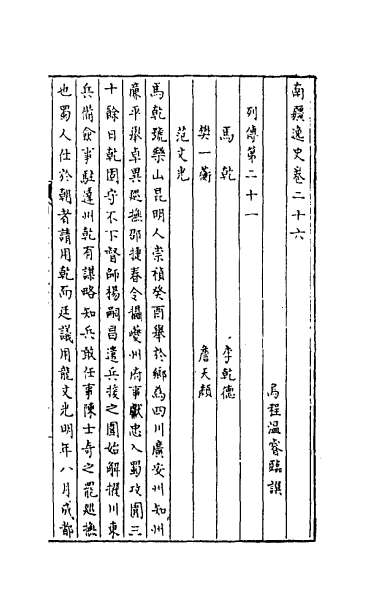 南疆逸史卷二十六
烏程溫睿臨譔
列傳第二十一
馬乾 李乾德
樊一蘅 詹天顏
范文光
馬乾號樂山昆明人崇禎癸酉舉於鄉為四川廣安州知州
廉平舉卓異巡撫邵捷春令攝夔州府事獻忠入蜀攻圍三
十餘日乾固守不下督師楊嗣昌遣兵援之圍始解擢川東
兵備僉事駐達州乾有謀略知兵敢任事陳士奇之罷巡撫
也蜀人仕於朝者請用乾而廷議用龍文光明年八月成都